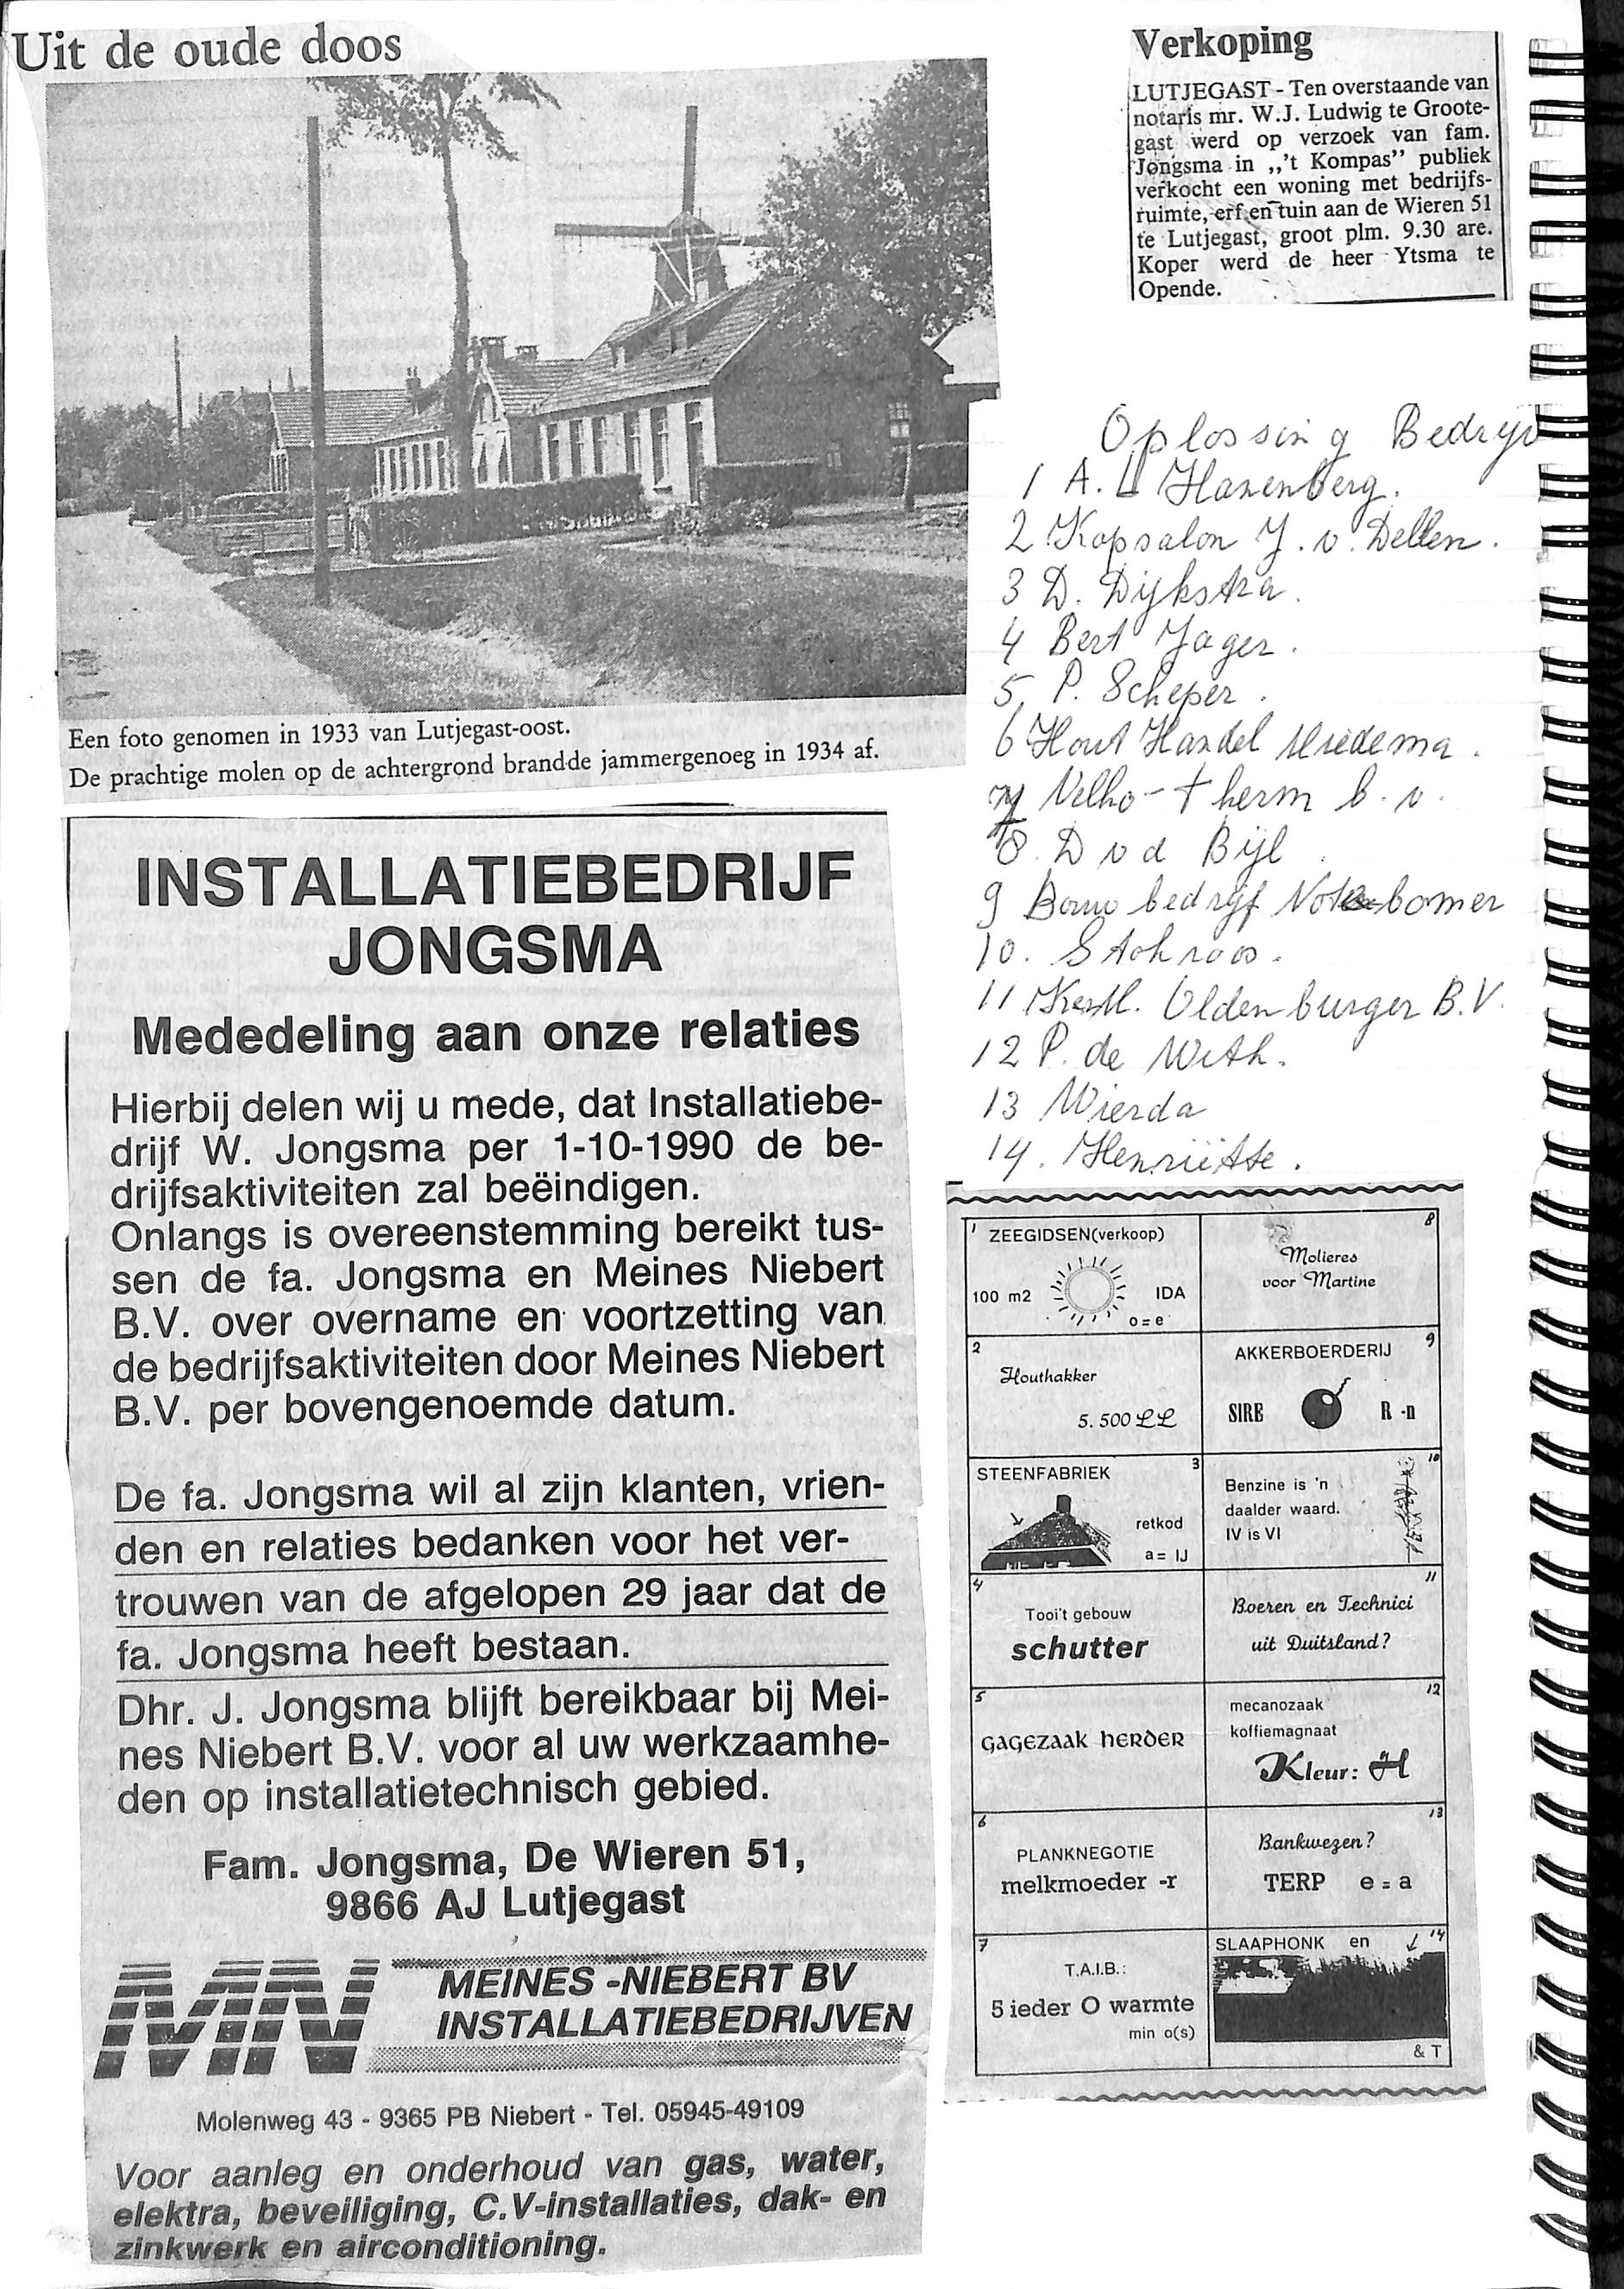 Uit de oude doos
Een foto genomen in 1933 van Lutjegast-oost.
De prachtige molen op de achtergrond brandde jammergenoeg in 1934 af.
INSTALLATIEBEDRIJF
JONGSMA
Mededeling aan onze relaties
Hierbij delen wij u mede, dat Installatiebe-
drijf W. Jongsma per 1-10-1990 de be-
drijfsaktiviteiten zal beëindigen.
Onlangs is overeenstemming bereikt tus-
sen de fa. Jongsma en Meines Niebert
B.V. over overname en voortzetting van
de bedrijfsaktiviteiten door Meines Niebert
B.V. per bovengenoemde datum.
De fa. Jongsma wil al zijn klanten, vrien-
den en relaties bedanken voor het ver-
trouwen van de afgelopen 29 jaar dat de
fa. Jongsma heeft bestaan.
Dhr. J. Jongsma blijft bereikbaar bij Mei-
nes Niebert B.V. voor al uw werkzaamhe-
den op installatietechnisch gebied.
Fam. Jongsma, De Wieren 51,
9866 AJ Lutjegast
MN
MEINES -NIEBERT BV
INSTALLATIEBEDRIJVEN
Molenweg 43 - 9365 PB Niebert - Tel. 05945-49109
Voor aanleg en onderhoud van gas, water,
elektra, beveiliging, C.V-installaties, dak- en
zinkwerk en airconditioning.
Verkoping
LUTJEGAST - Ten overstaande van
notaris mr. W.J. Ludwig te Groote-
gast werd op verzoek van fam.
Jongsma in ,,'t Kompas" publiek
verkocht een woning met bedrijfs-
ruimte, erf en tuin aan de Wieren 51
te Lutjegast, groot plm. 9.30 are.
Koper werd de heer Ytsma te
Opende.
Oplossing Bedrijv
1 A. Hazenberg.
2 Kapsalon J. v. Dellen.
3 D. Dijkstra.
4 Bert Jager.
5 P. Scheper.
6 Hout Handel Miedema.
7 Velho-therm b.v.
8. D v d Bijl.
9 Bouw bedrijf Notebomer
10. Stokroos.
11 Oldenburger B.V.
12 P. de With.
13 Wierda
14. Henriëtte.
1 ZEEGIDSEN(verkoop)
100 m2 IDA
o=e
2
Houthakker
5.500 LL
STEENFABRIEK 3
retkod
a= IJ
4
Tooi't gebouw
schutter
5
GAGEZAAK HERDER
6
PLANKNEGOTIE
melkmoeder -r
7
T.A.I.B.:
5 ieder O warmte
min o(s)
8
Molieres
voor Martine
9
AKKERBOERDERIJ
SIRE R -n
10
Benzine is 'n
daalder waard.
IV is VI
11
Boeren en Technici
uit Duitsland?
12
mecanozaak
koffiemagnaat
Kleur: H
13
Bankwezen?
TERP e=a
SLAAPHONK en 14
& T